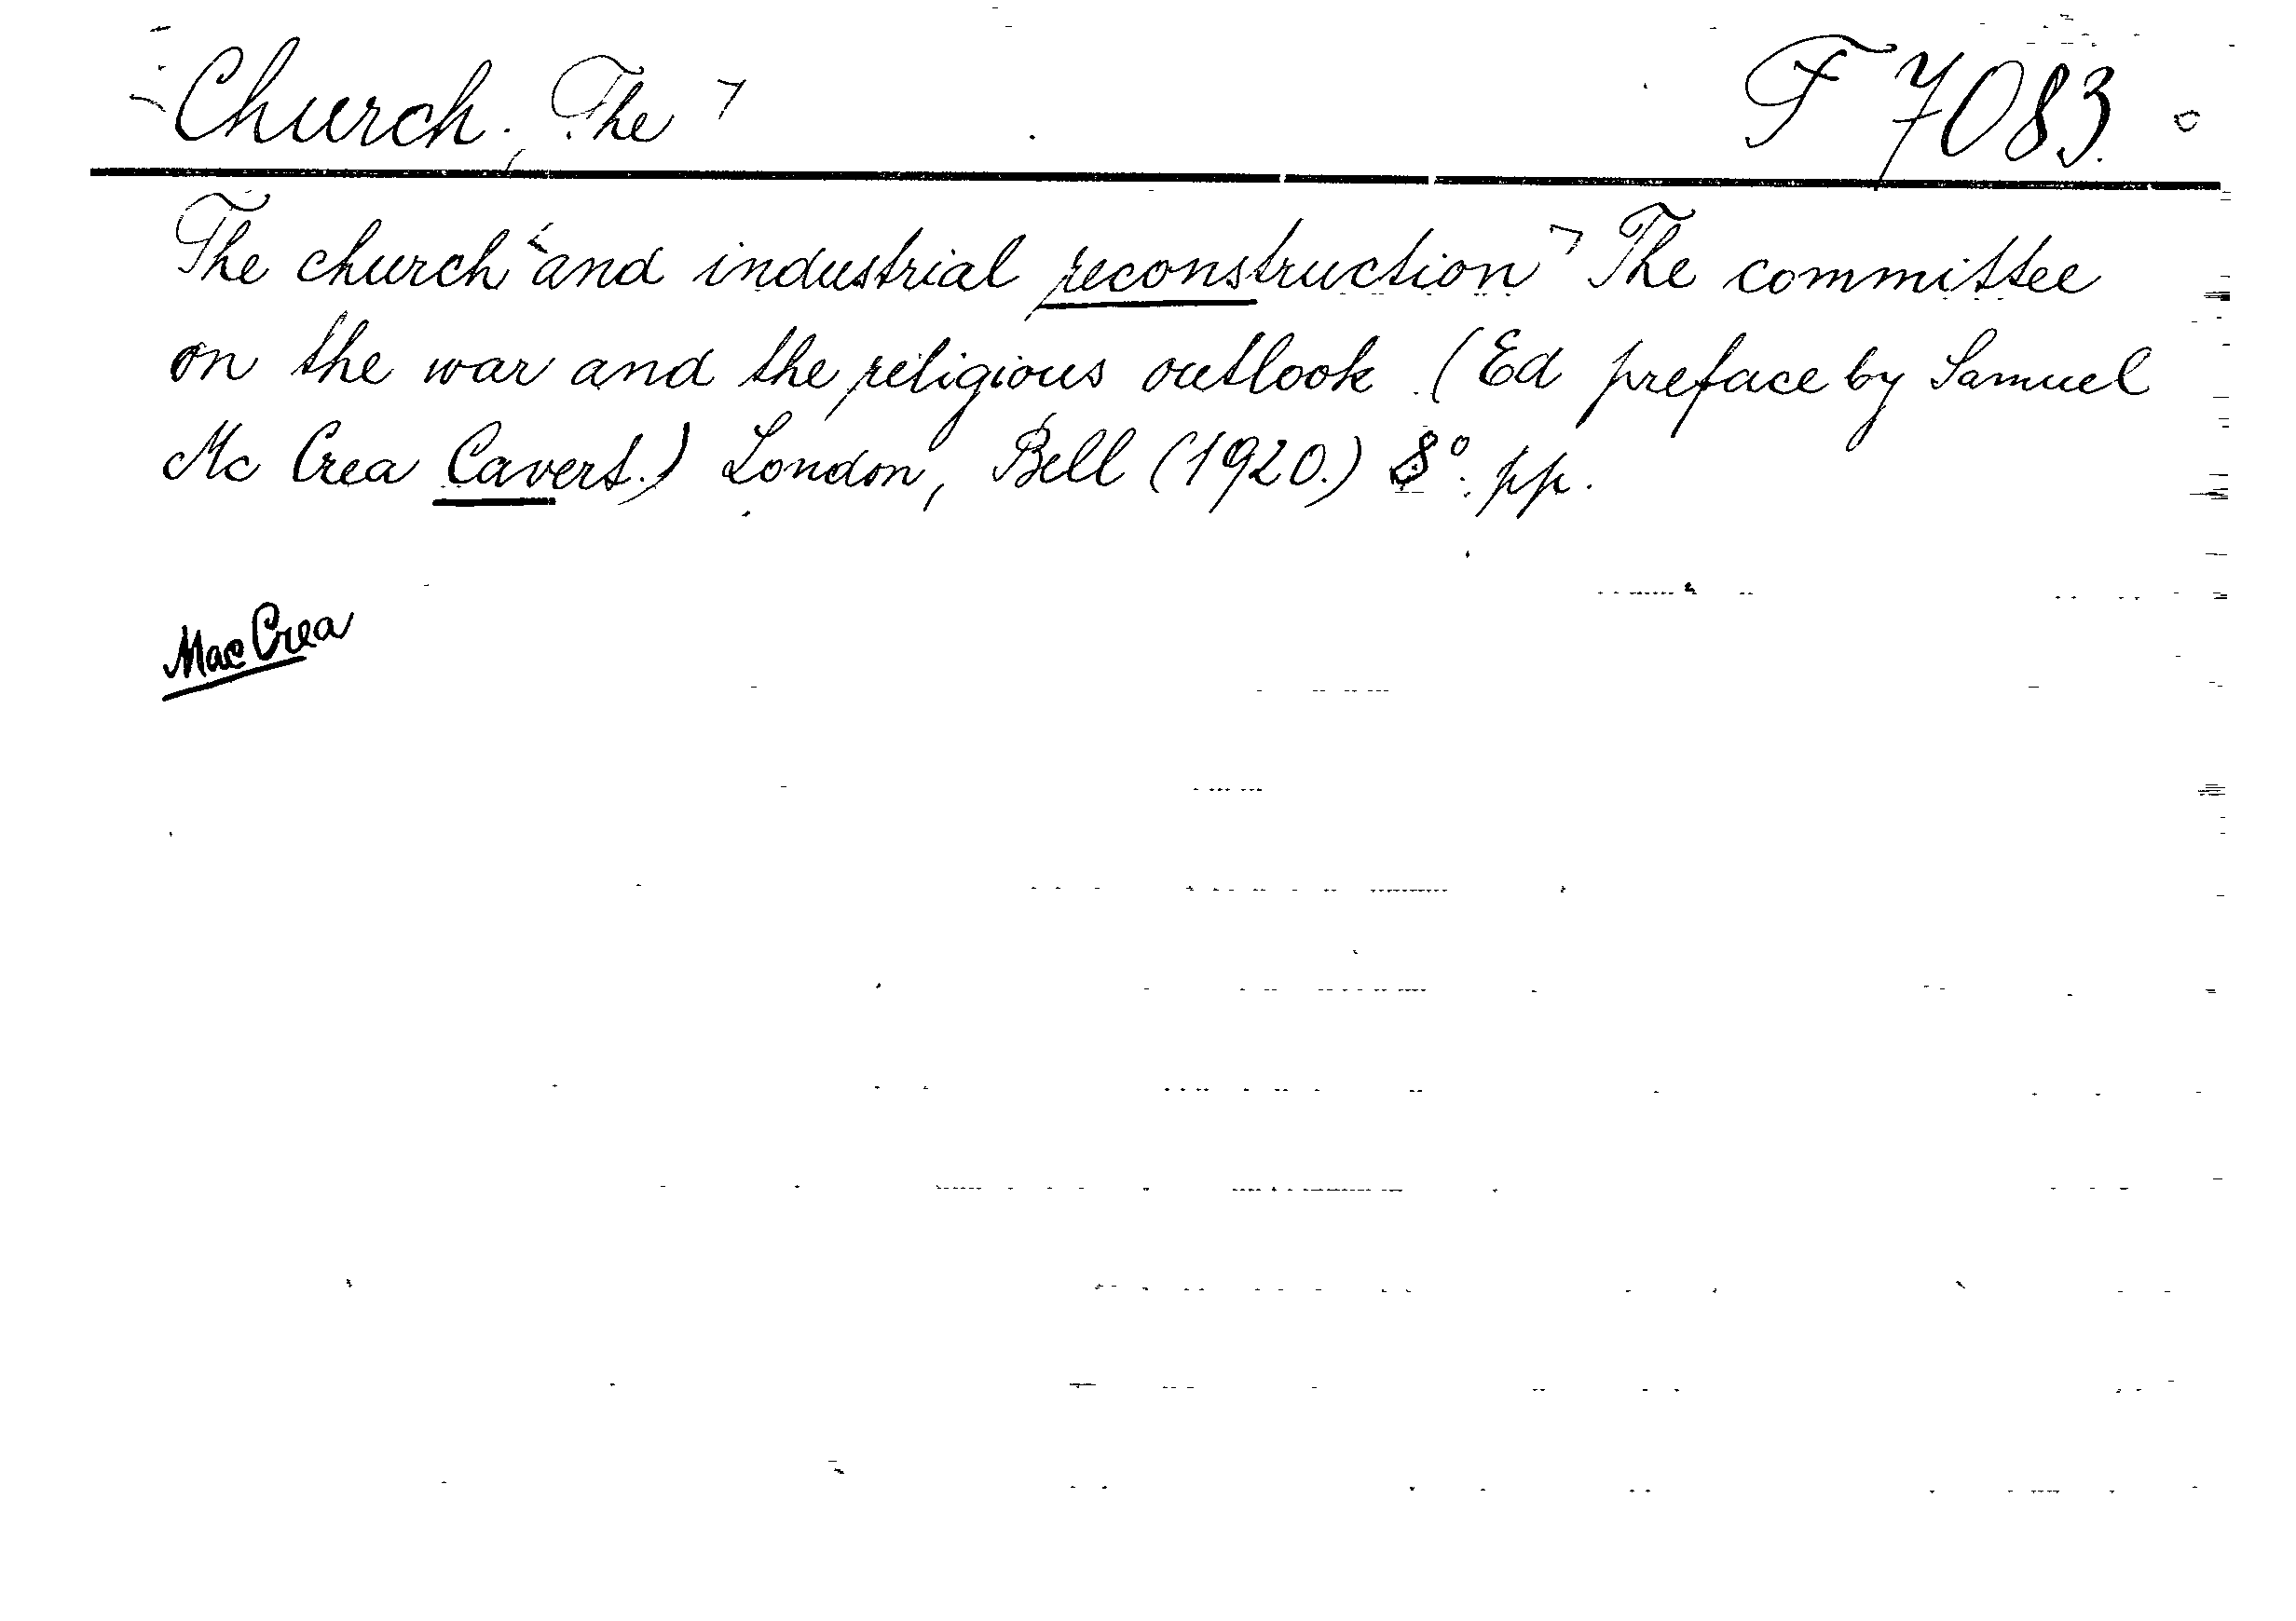 Church, The F 7083.
The church and industrial reconstruction The committee
on the war and the religious outlook (Ed preface by Samuel
Mc Crea Cavert.) London, Bell (1920.) 8°. pp.
Mac Crea